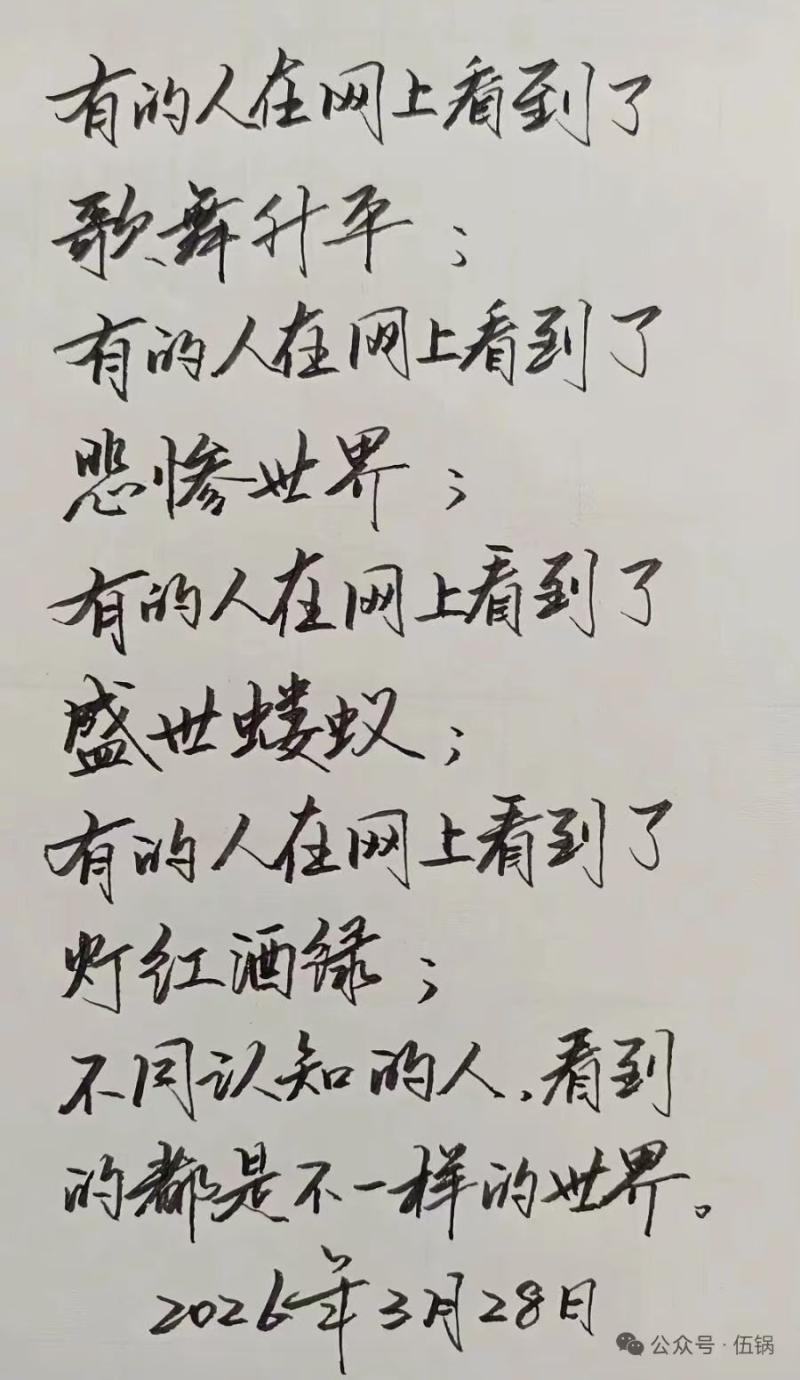 有的人在网上看到了
歌舞升平；
有的人在网上看到了
悲惨世界；
有的人在网上看到了
盛世蝼蚁；
有的人在网上看到了
灯红酒绿；
不同认知的人，看到
的都是不一样的世界。
2026年3月28日
公众号·伍锅